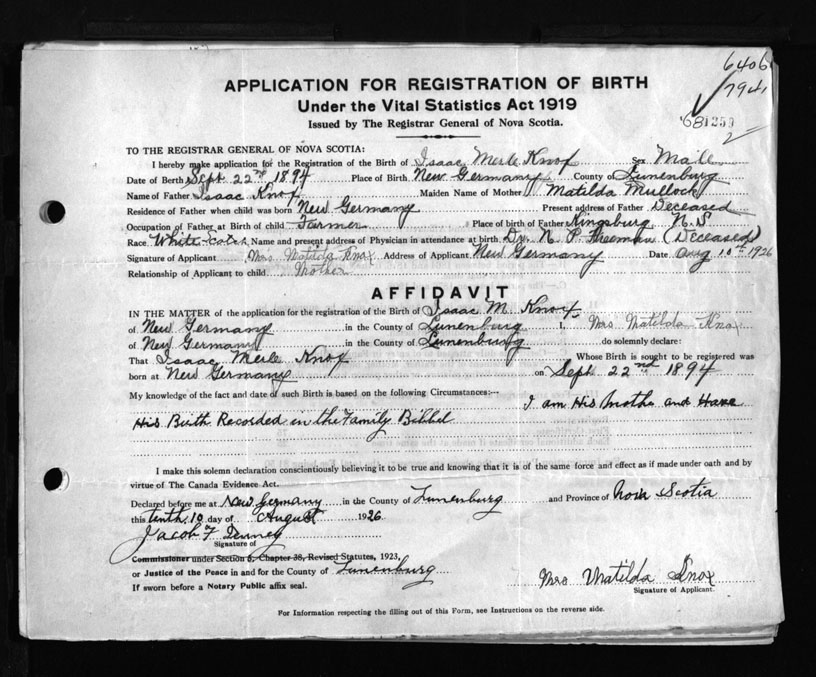 6406
7941
681259
2
APPLICATION FOR REGISTRATION OF BIRTH
Under the Vital Statistics Act 1919
Issued by The Registrar General of Nova Scotia.
TO THE REGISTRAR GENERAL OF NOVA SCOTIA:
I hereby make application for the Registration of the Birth of Isaac Merle Knox Sex Male
Date of Birth Sept 22nd 1894 Place of Birth New Germany County of Lunenburg
Name of Father Isaac Knox Maiden Name of Mother Matilda Mullock
Residence of Father when child was born New Germany Present address of Father Deceased
Occupation of Father at Birth of child Farmer Place of birth of Father Kingsburg N.S
Race White Name and present address of Physician in attendance at birth Dr. N. P. Freeman (Deceased)
Signature of Applicant Mrs Matilda Knox Address of Applicant New Germany Date Aug 10th 1926
Relationship of Applicant to child Mother
AFFIDAVIT
IN THE MATTER of the application for the registration of the Birth of Isaac M. Knox
of New Germany in the County of Lunenburg I, Mrs Matilda Knox
of New Germany in the County of Lunenburg do solemnly declare:
That Isaac Merle Knox Whose Birth is sought to be registered was
born at New Germany on Sept 22nd 1894
My knowledge of the fact and date of such Birth is based on the following Circumstances:— I am His Mothe and Have
His Birth Recorded in the Family Bibbel
I make this solemn declaration conscientiously believing it to be true and knowing that it is of the same force and effect as if made under oath and by
virtue of The Canada Evidence Act.
Declared before me at New Germany in the County of Lunenburg and Province of Nova Scotia
this tenth 10 day of August 1926
Jacob F
Signature of
Commissioner under Section 6, Chapter 38, Revised Statutes, 1923,
or Justice of the Peace in and for the County of Lunenburg
If sworn before a Notary Public affix seal.
Mrs Matilda Knox
Signature of Applicant.
For Information respecting the filling out of this Form, see Instructions on the reverse side.